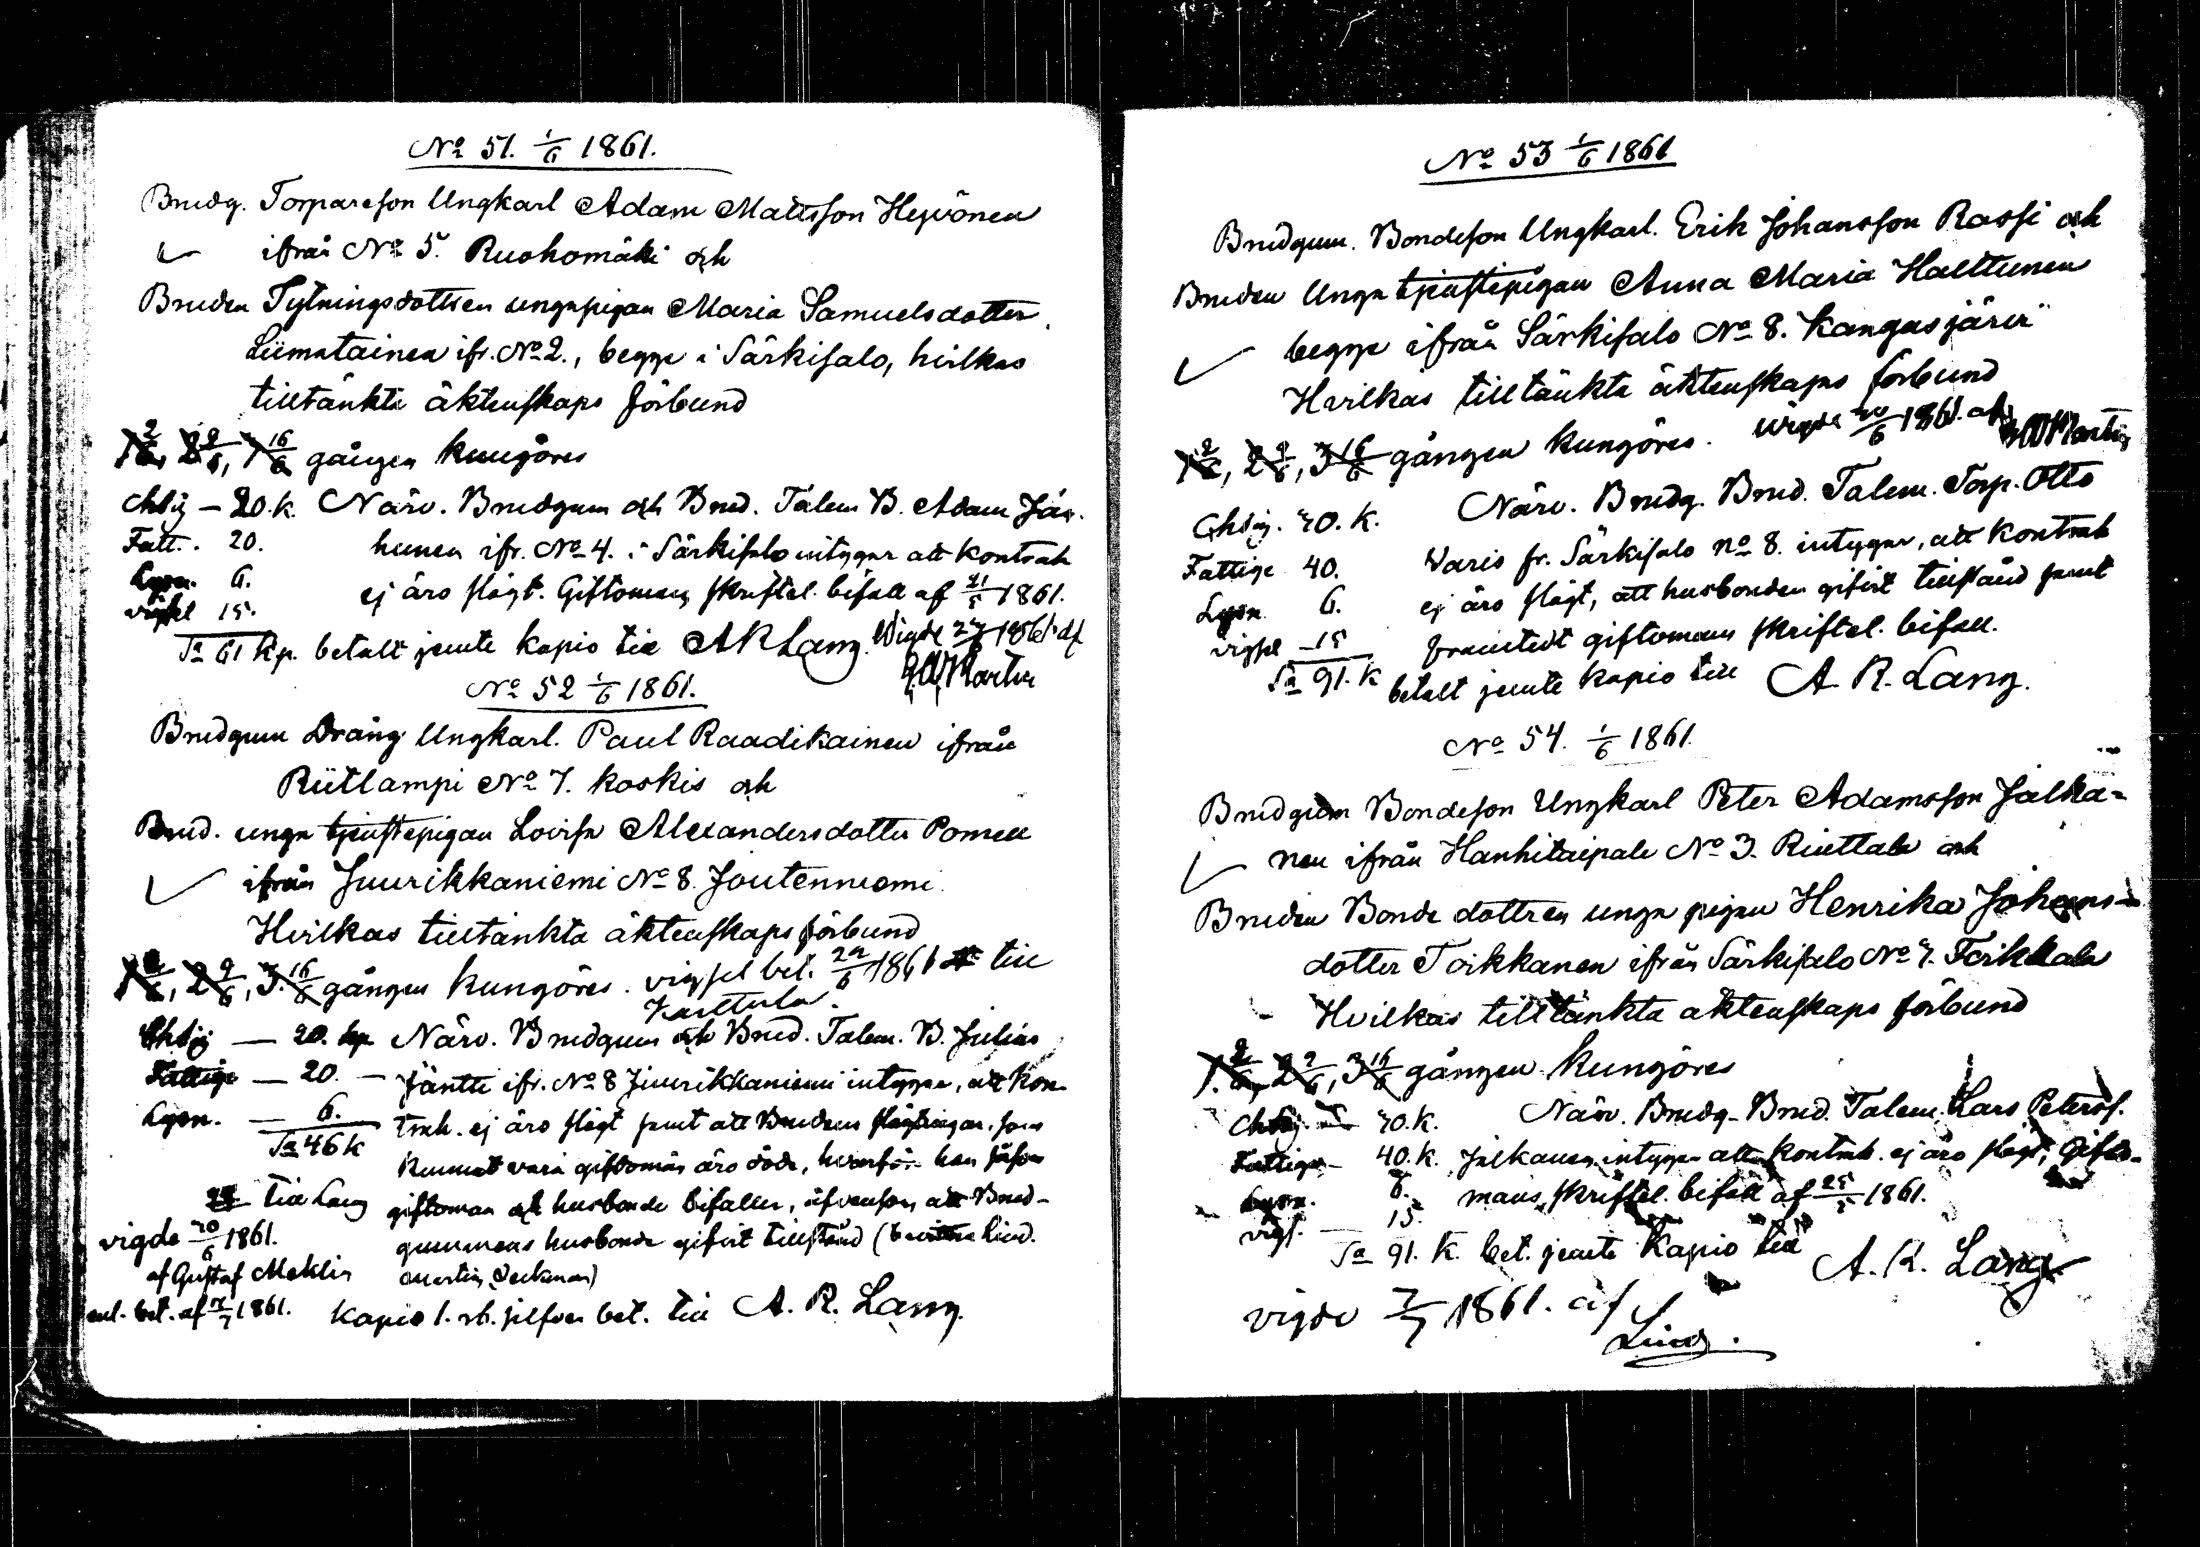 No 51. 1/6 1861.
Brudg. Torpareson Ungkarl Adam Mattsson Heyvönen
ifrån No 5. Ruohomäki och
Bruden Sytningsdottren unga pigan Maria Samuelsdotter
Liimatainen ifr. No 2., begge i Särkisalo, hvilkas
tilltänkte äktenskaps förbund
1 2/6, 2 9/6, 3 16/6 gången kungöres
20. K. Närv. Brudgum och Brud. Talem B. Adam Jäs-
Fatt. 20. hunen ifr. No 4. i Särkisalo intygar att kontrah
Lysn. 6. ej äro slägt. Giftomans skriftel. bifall af 21/5 1861.
vigsel 15.
Sa 61 Kp. betalt jemte kapio till A R Lang. Wigde 1861 af
No 52 1/6 1861.
Brudgum Dräng Ungkarl. Paul Raadikainen ifrån
Riitlampi No 7. Koskis och
Brud. unga tjenstepigan Lovisa Alexandersdotter Pomell
ifrån Juurikkaniemi No 8. Joutenniemi
Hvilkas tilltänkta äktenskaps förbund
2 9/6, 3. 16/6 gången kungöres. vigsel bet. 1861 till
20. kp Närv. Brudgum och Brud. Talem. B. Julius
Fattige — 20. — Jäntti ifr. No 8 Juurikkaniemi intygar, att kon-
Lysn. — 6. trah. ej äro slägt samt att Brudens slägtingar, som
Sa 46 K kunnat vara giftomän äro döde, hvarför han såsom
till Lang giftoman och husbonde bifaller, äfvensom att Brud-
vigde 1861. gummens husbonde gifvit tillstånd
af Gustaf Meklin
bet. af 1861. Kapio 1. rb. silfver bet. till A. R. Lang.
No 53 1/6 1861
Brudgum. Bondeson Ungkarl. Erik Johansson Rassi och
Bruden Unga tjenstepigan Anna Maria Halttunen
begge ifrån Särkisalo No 8. Kangasjärvi
Hvilkas tilltänkta äktenskaps förbund
1 2/6, 2 9/6, 3 16/6 gången kungöres. wigde 1861. af
40. K. Närv. Brudg. Brud. Talem. Torp. Otto
Fattige 40. Varis fr. Särkisalo no 8. intygar, att kontrah
Lysn 6. ej äro slägt, att husbonden gifvit tillstånd samt
vigsel 15 framtedt giftomans skriftel. bifall.
Sa 91. K betalt jemte kapio till A. R. Lang.
No 54. 1/6 1861.
Brudgum Bondeson Ungkarl Peter Adamsson Jalka-
nen ifrån Hanhitaipale No 3. och
Bruden Bonde dottren unga pigan Henrika Johans-
dotter Toikkanen ifrån Särkisalo No 7. Toikkala
Hvilkas tilltänkta äktenskaps förbund
1. 2/6, 2 9/6, 3 16/6 gången kungöres
40. K. Närv. Brudg. Brud. Talem. Lars Peterss.
Fattige — 40. K. Jalkanen intygar att kontrah. ej äro slägt, Gifto-
Lysn. 6. mans skriftel. bifall af 25/5 1861.
vigs. — 15.
Sa 91. K. bet. jemte Kapio till A. R. Lang
vigde 7/7 1861. af